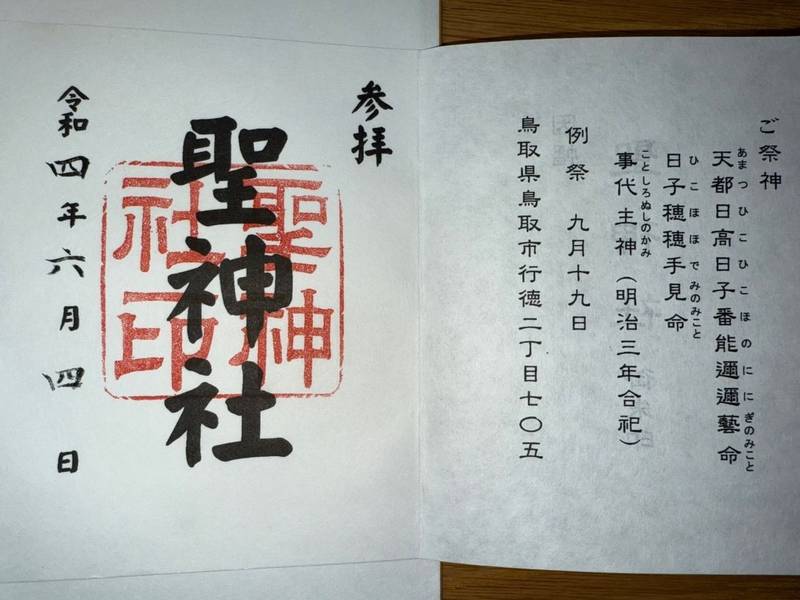 ご祭神
あまつひこひこほのににぎのみこと
天都日高日子番能邇邇藝命
ひこほほでみのみこと
日子穂穂手見命
ことしろぬしのかみ
事代主神（明治三年合祀）
例祭　九月十九日
鳥取県鳥取市行徳二丁目七〇五
参拝
聖神社
聖神
社印
令和四年六月四日